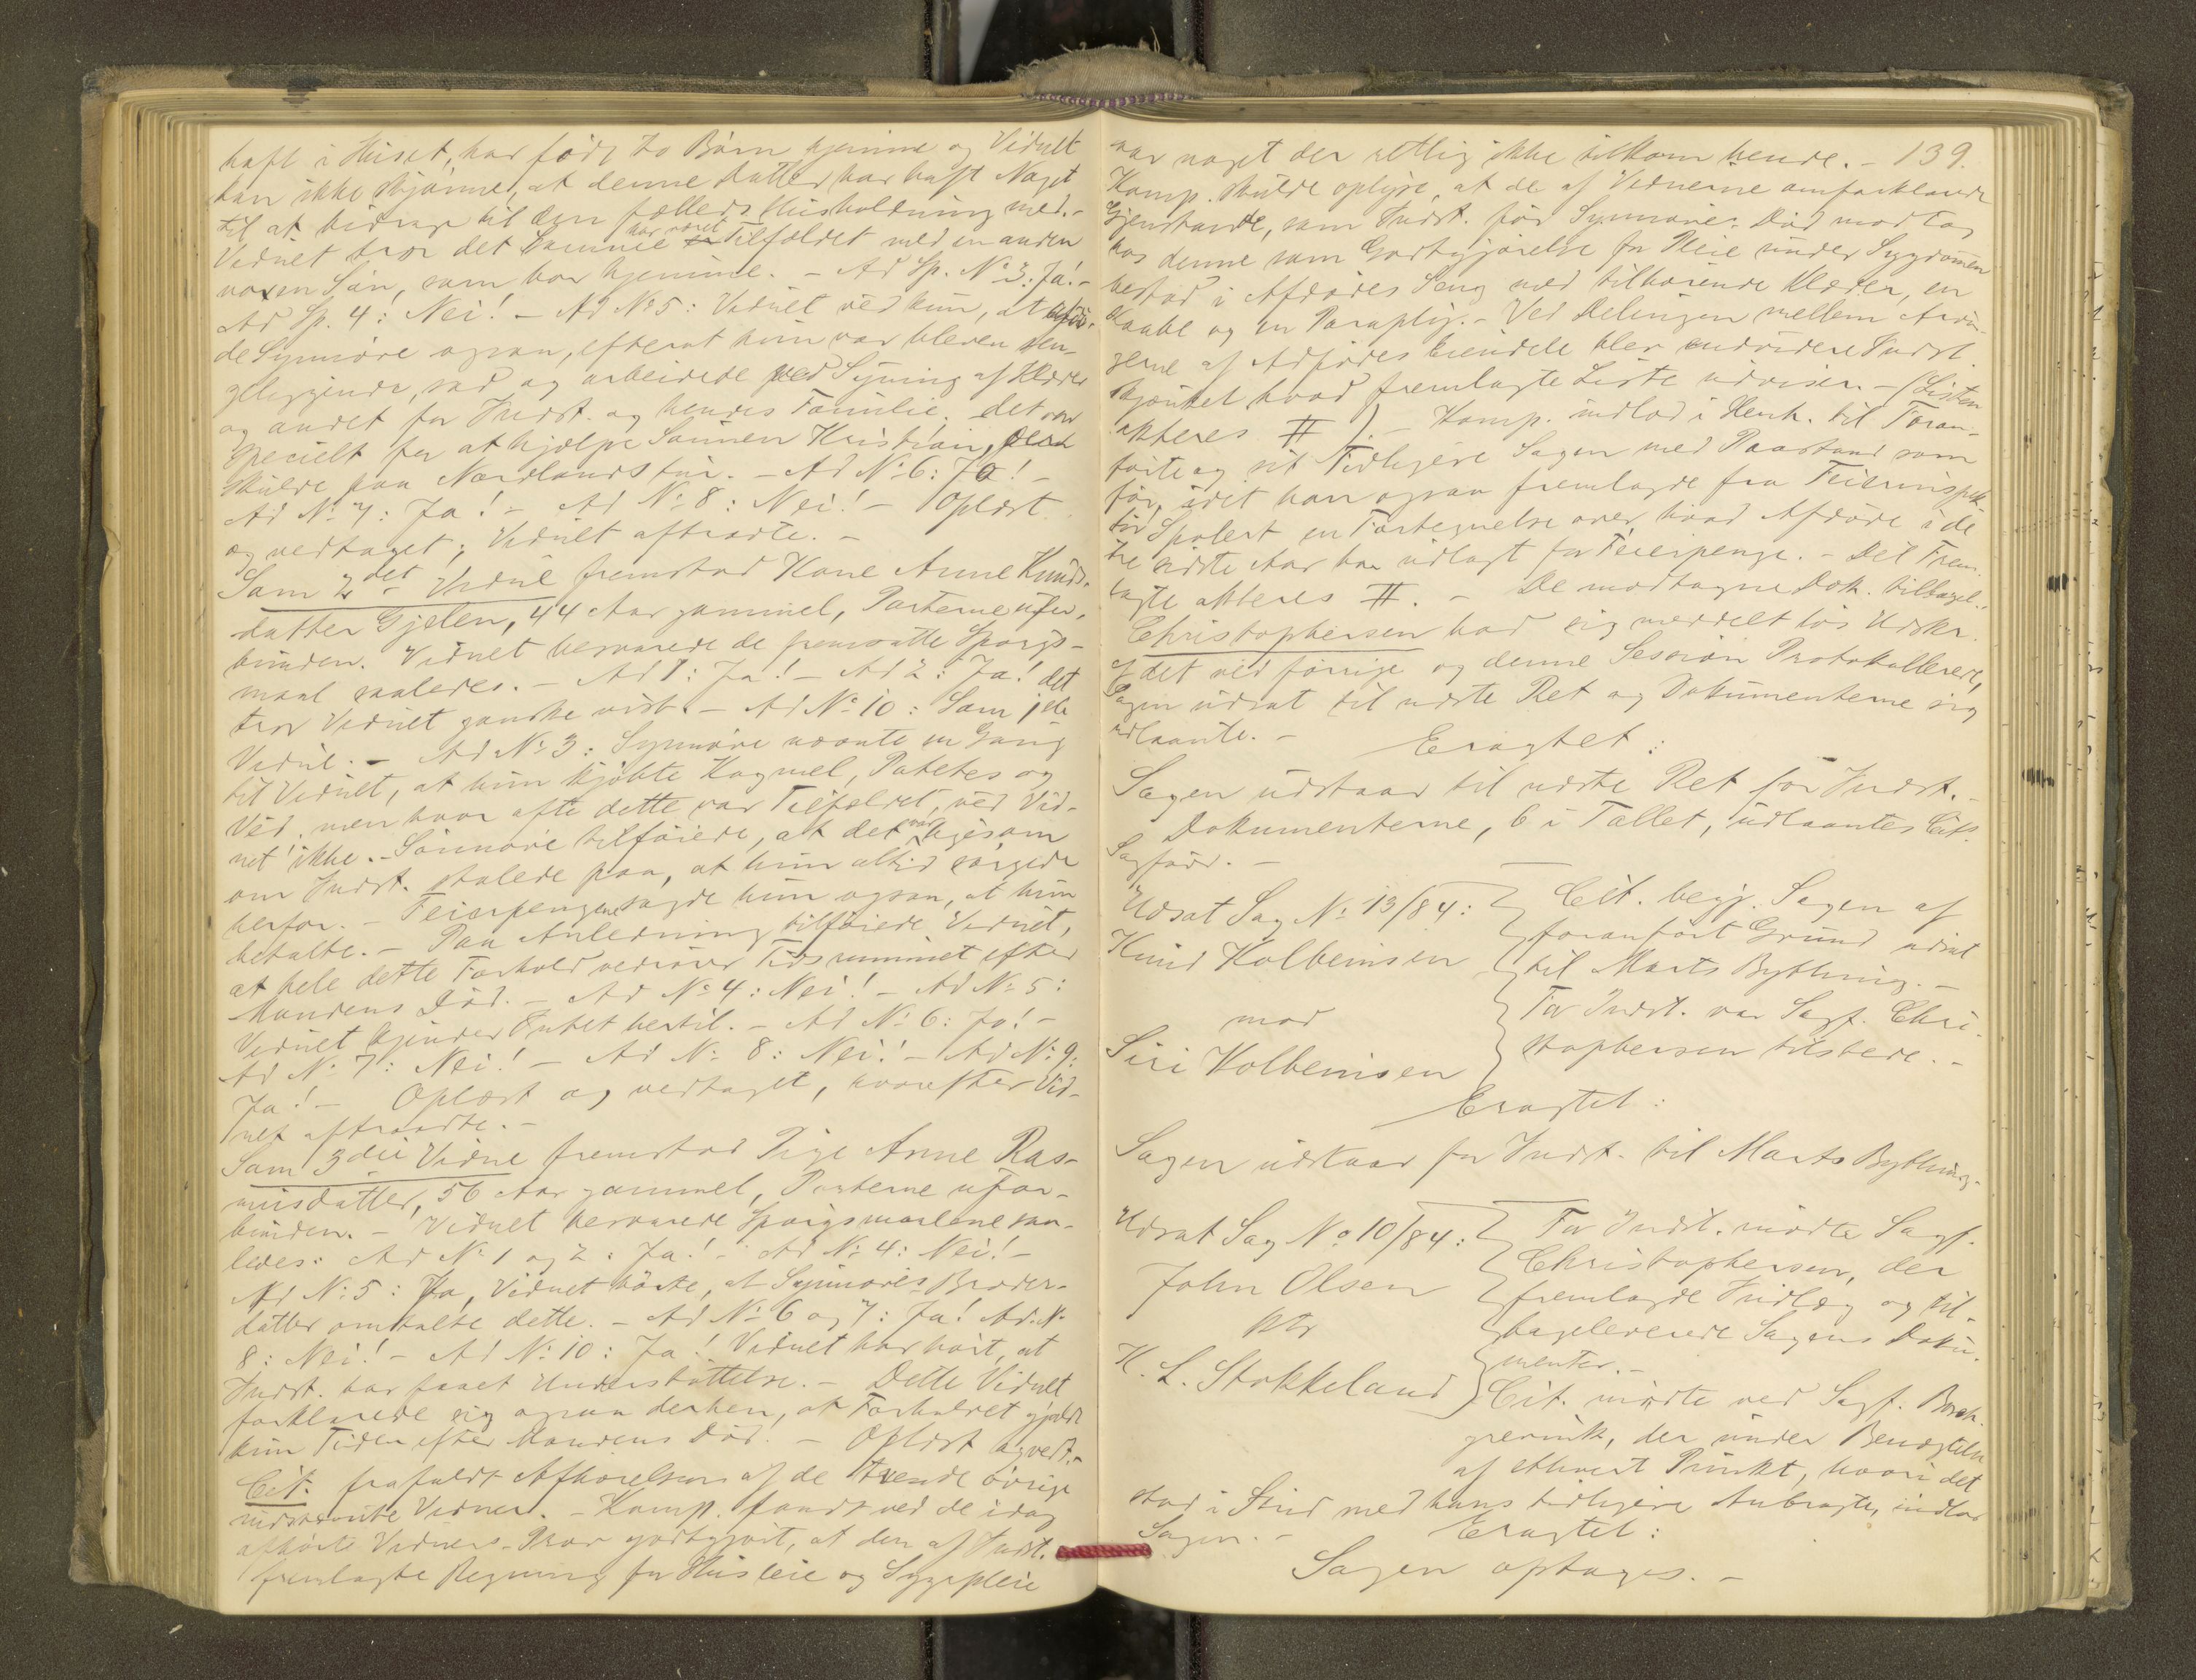 haft i Huset, har født to Børn hjemme og Vidnet
kan ikke skjønne, at denne Datter har haft Noget
til at bidrage til den fælleds Husholdning med. -
Vidnet tror det Samme har været Tilfældet med en anden
voxen Søn, som bor hjemme. - Ad Sp. No 3: Ja! -
Ad Sp. 4: Nei! - Ad No 5: Vidnet ved kun, at afdø-
de Synnøve ogsaa, efterat hun var bleven sen-
geliggende, sad og arbeidede ved Syning af Klæder
og andet for Indst. og hendes Familie; det var
specielt for at hjælpe Sønnen Kristian, der
skulde paa Nordlandstur. - Ad No 6: Ja! -
Ad No 7: Ja! - Ad No 8: Nei! - Oplæst
og vedtaget; Vidnet aftraadte. -
Som 2det Vidne fremstod Kone Anne Knuds-
datter Gjelen, 44 Aar gammel, Parterne ufor-
bunden. Vidnet besvarede de fremsatte Spørgs-
maal saaledes. - Ad 1: Ja! - Ad 2: Ja! det
tror Vidnet ganske vist. - Ad No 10: Som 1ste
Vidne. - Ad No 3: Synnøve nævnte en Gang
til Vidnet, at hun kjøbte Kogmel, Potetes og
Ved, men hvor ofte dette var Tilfældet, ved Vid-
net ikke. - Sønnøve tilføiede, at det var ligesom
om Indst. stolede paa, at hun altid sørgede
herfor. - Feierpengene sagde hun ogsaa, at hun
betalte. - Paa Anledning tilføiede Vidnet,
at hele dette Forhold vedrører Tidsrummet efter
Mandens Død. - Ad No 4: Nei! - Ad No 5:
Vidnet kjender Intet hertil. - Ad No 6: Ja! -
Ad No 7: Nei! - Ad No 8: Nei! - Ad No 9:
Ja! - Oplæst og vedtaget, hvorefter Vid-
net aftraadte. -
Som 3die Vidne fremstod Pige Anne Ras-
musdatter, 56 Aar gammel, Parterne ufor-
bunden. - Vidnet besvarede Spørgsmaalene saa-
ledes: Ad No 1 og 2: Ja! - Ad No 4: Nei! -
Ad No 5: Ja, Vidnet hørte, at Synnøves Broder-
datter omtalte dette. - Ad No 6 og 7: Ja! Ad. No
8: Nei! - Ad No 10: Ja! Vidnet har hørt, at
Indst. har faaet Understøttelse. - Dette Vidnet
forklarede sig ogsaa derhen, at Forholdet gjaldt
kun Tiden efter Mandens Død. - Oplæst og vedt. -
Cit. frafaldt Afhørelsen af de tvende øvrige
indstevnte Vidner. - Komp. fandt ved de idag
afhørte Vidners Svar godtgjort, at den af Indst.
fremlagte Regning for Husleie og Sygepleie
var noget der retlig ikke tilkom hende. - 139.
Komp. skulde oplyse, at de af Vidnerne omforklarede
Gjenstande, som Indst. før Synnøves Død modtog
hos denne som Godtgjørelse for Pleie under Sygdommen
bestod i Afdødes Seng med tilhørende Klæder, en
Kaabe og en Paraply. - Ved Delingen mellem Arvin-
gerne af Afdødes Eiendele blev endvidere Indst.
skjænket hvad fremlagte Liste udviser. - (Listen
akteres #) - Komp. indlod i Henh. til Foran-
førte og sit Tidligere Sagen med Paastand som
før, idet han ogsaa fremlagde fra Feierinspek-
tør Spolert en Fortegnelse over, hvad Afdøde i de
tre sidste Aar har udlagt for Feierpenge. - Det Frem-
lagte akteres #. - De modtagne Dok. tilbagel.
Christophersen bad sig meddelt løs Udskr.
af det ved forrige og denne Session Protokollerede,
Sagen udsat til næste Ret og Dokumenterne sig
udlaante. -
Eragtet:
Sagen udstaar til næste Ret for Indst. -
Dokumenterne, 6 i Tallet, udlaantes Cits
Sagfører. -
Udsat Sag No 13/84:
Knud Kolbeinsen
mod
Siri Kolbeinsen
Cit. begj. Sagen af
foranført Grund udsat
til Marts Bything. -
For Indst. var Sagf. Chri-
stophersen tilstede. -
Eragtet:
Sagen udstaar for Indst. til Marts Bything. -
Udsat Sag No 10/84:
John Olsen
ktr
K. L. Stokkeland
For Indst. mødte Sagf.
Christophersen, der
fremlagde Indlæg og til-
bageleverede Sagens Doku-
menter. -
Cit. mødte ved Sagf. Borch-
grevink, der under Benægtelse
af ethvert Punkt, hvori det
stod i Strid med hans tidligere Anbragte, indlod
Sagen. -
Eragtet:
Sagen optages. -